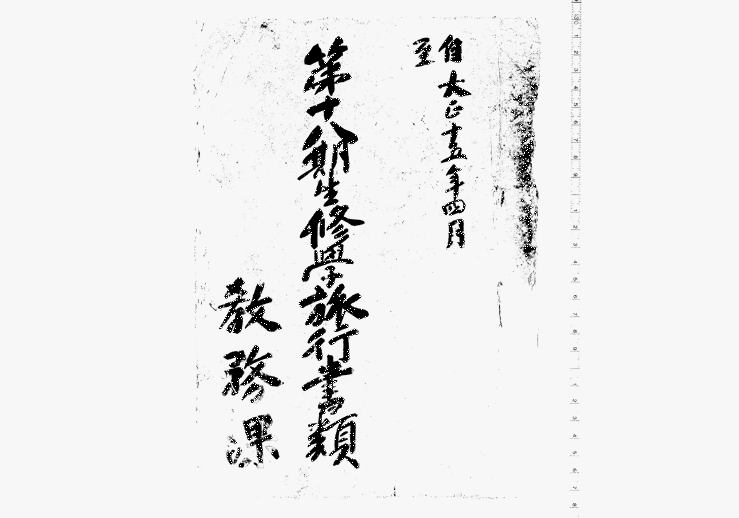 自大正十五年四月
至
第十八期生修學旅行書類
教務課